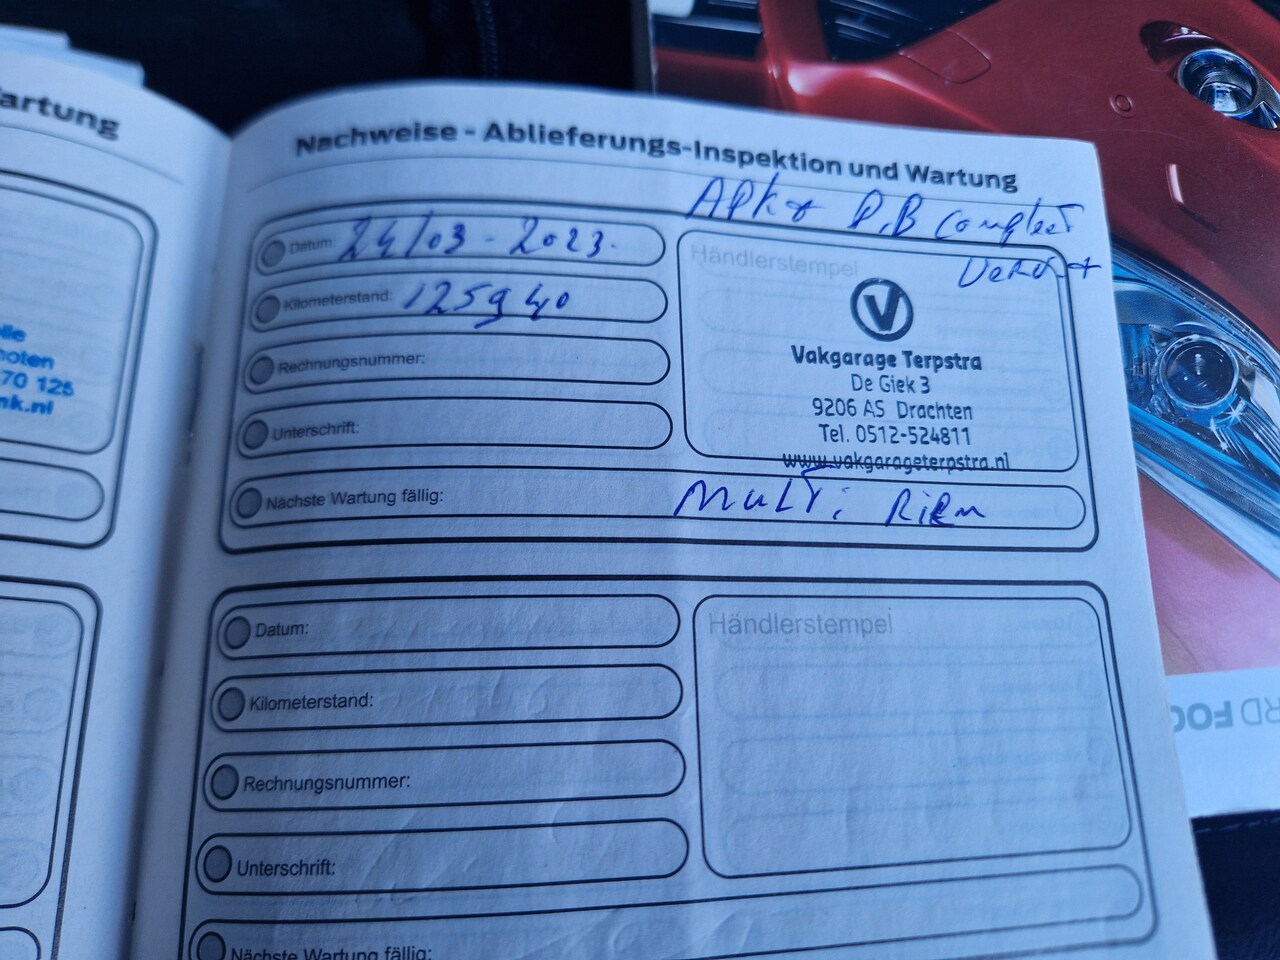 artung
lle
noten
70 125
nk.nl
Nachweise - Ablieferungs-Inspektion und Wartung
APK + D.B compleet
Datum: 24/03-2023.
Kilometerstand: 125940
Rechnungsnummer:
Unterschrift:
Nächste Wartung fällig: Multi Riem
Händlerstempel
V
Vakgarage Terpstra
De Giek 3
9206 AS Drachten
Tel. 0512-524811
www.vakgarageterpstra.nl
Datum:
Kilometerstand:
Rechnungsnummer:
Unterschrift:
Nächste Wartung fällig:
Händlerstempel
RD FOC